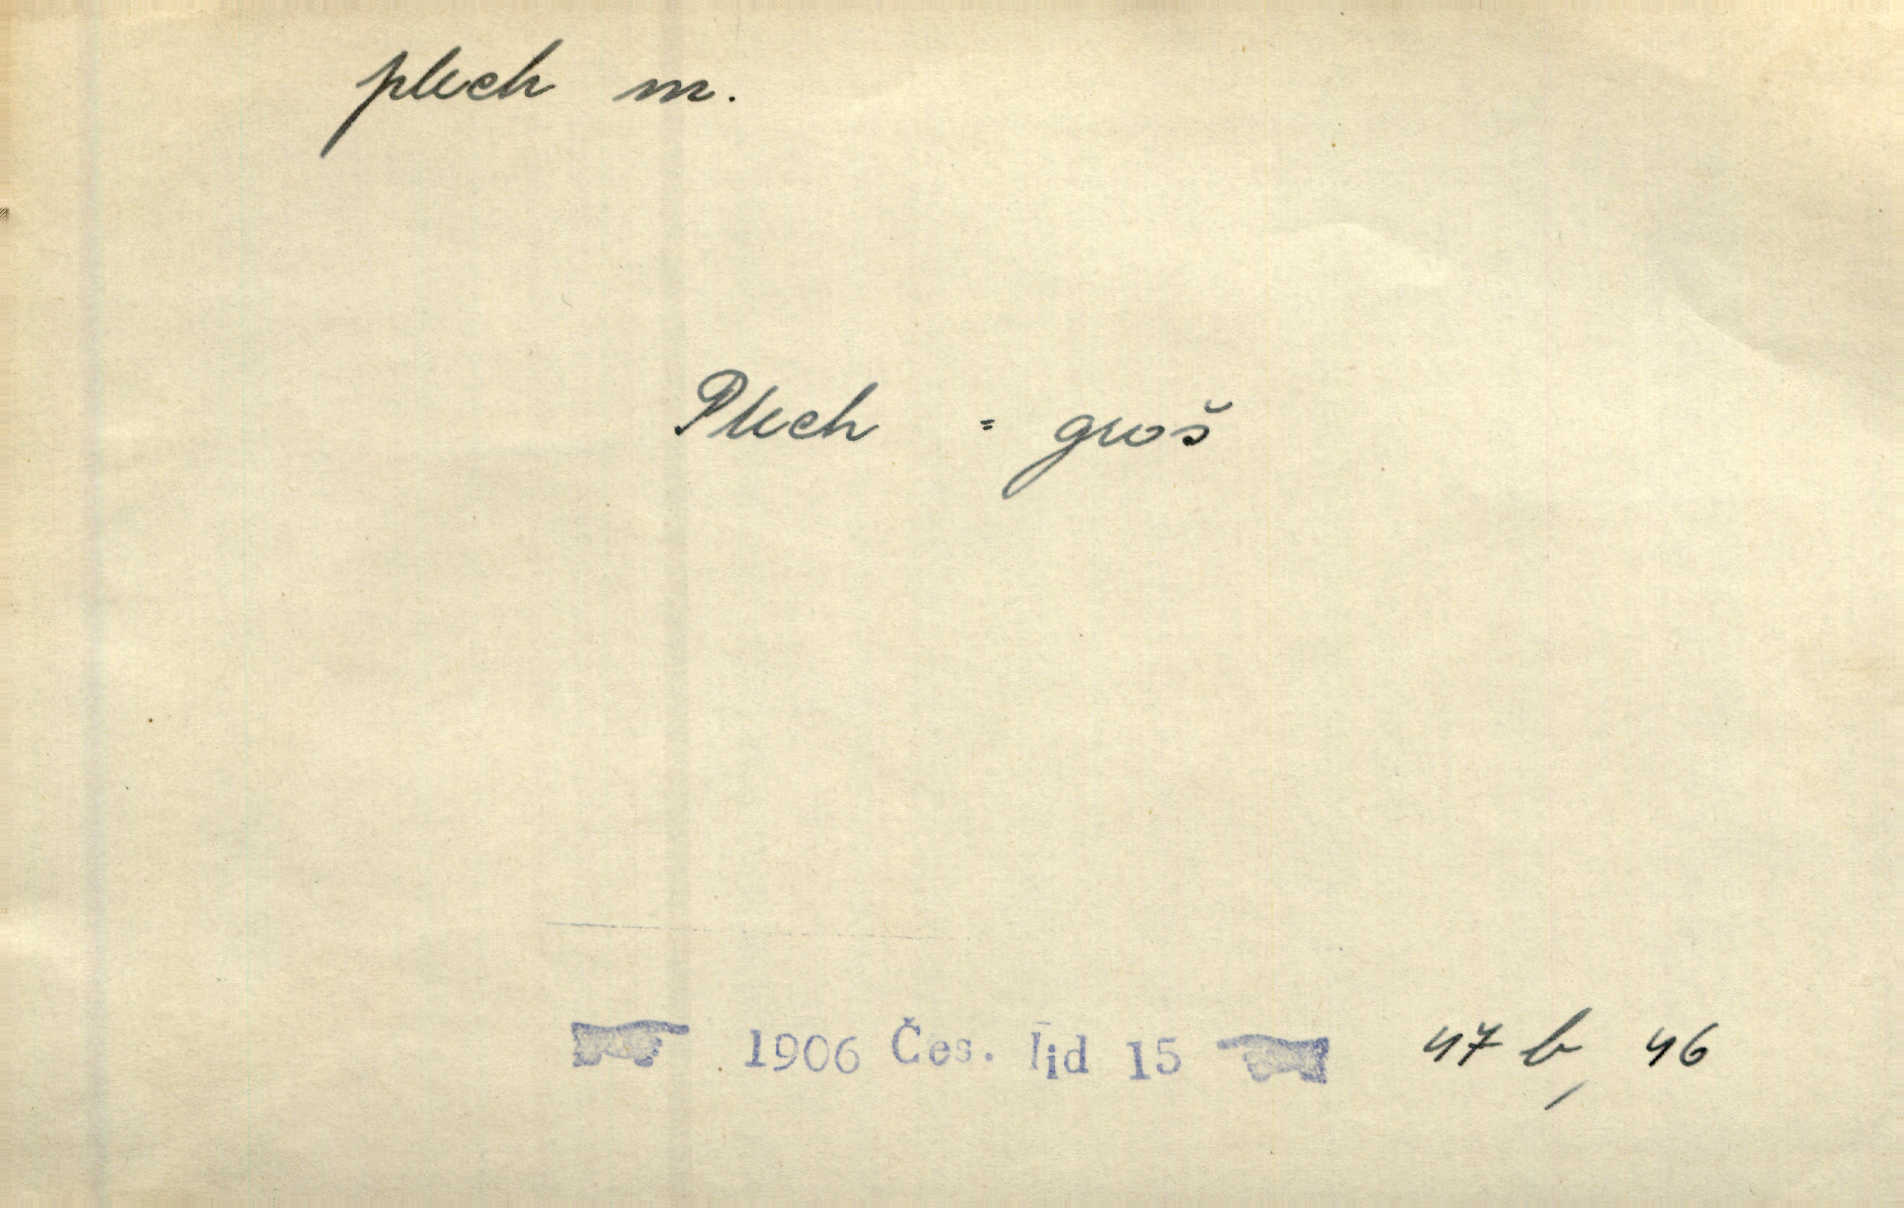 plech m.
Plech = groš
☛ 1906 Čes. lid 15 ☚ 47 b, 46